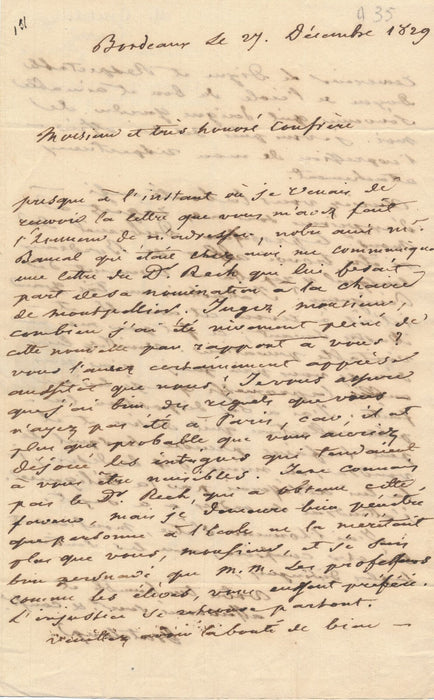 1er A 35
Bordeaux Le 27. Décembre 1829
Monsieur et très honoré Confrère
presque à l'instant où je venais de
recevoir la lettre que vous m'avez fait
l'honneur de m'adresser, notre ami mr.
Bancal qui était chez moi me communique
une lettre du Dr. Rech qui lui fesait
part de sa nomination à la chaire
de montpellier. Jugez, monsieur,
combien j'ai été vivement peiné de
cette nouvelle par rapport à vous?
vous l'aurez certainement apprise
aussitôt que nous! Je vous assure
que j'ai bien des regrets que vous
n'ayez pas été à Paris, car, il est
plus que probable que vous auriez
déjoué les intrigues qui tendaient
à vous être nuisibles. Je ne connais
pas le Dr. Rech qui a obtenu cette
faveur, mais je demeure bien pénétré
que personne à l'École ne la meritait
plus que vous, monsieur, et je suis
bien persuadé que m.m. Les professeurs
comme les élèves, vous eussent préféré.
L'injustice se retrouve partout.
veuillez avoir la bonté de bien